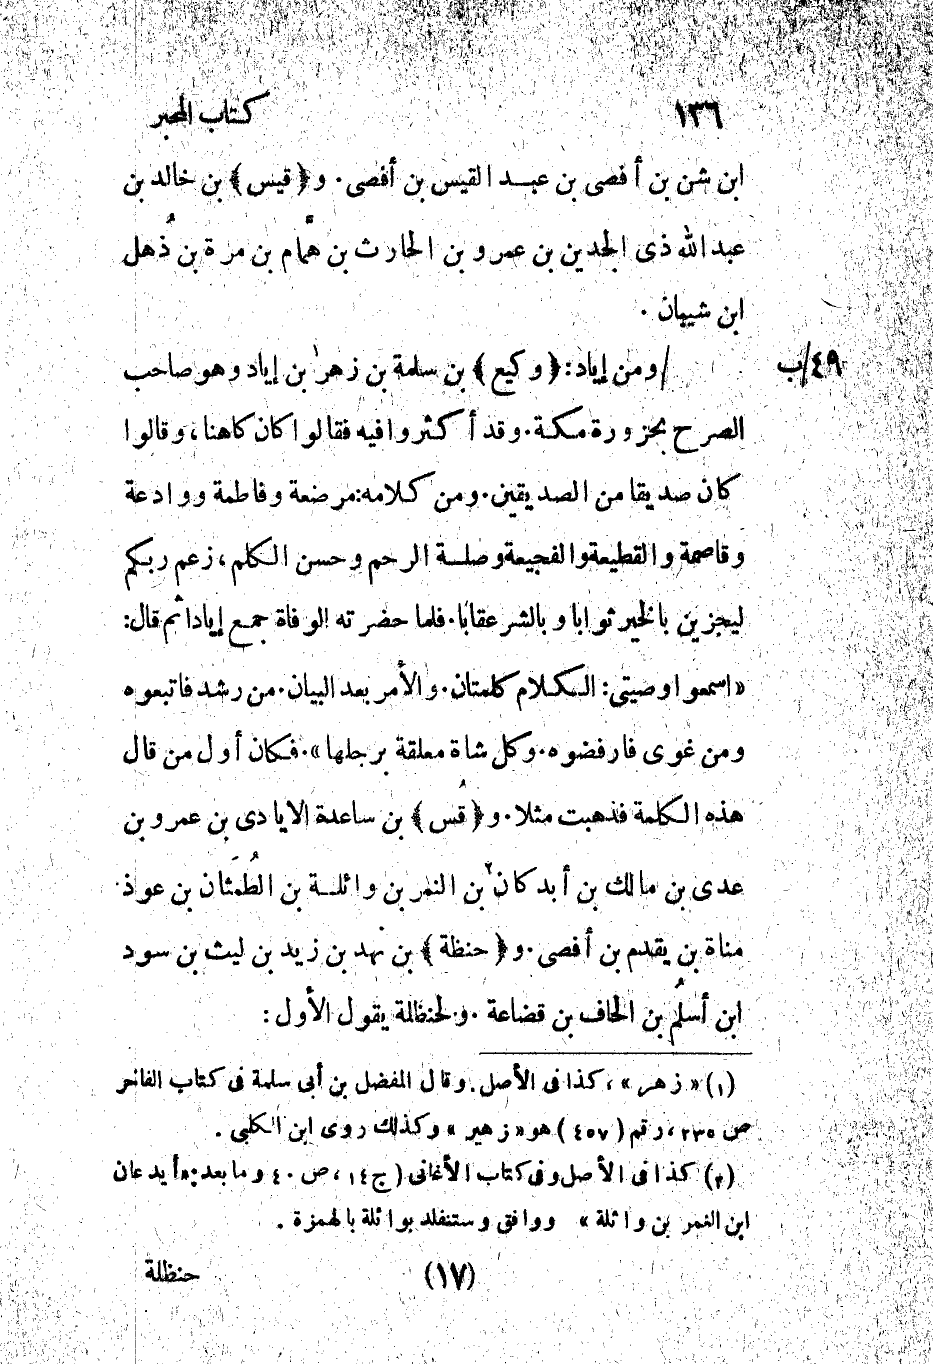 ١٣٦ كتاب المحبر
ابن شن بن أفصى بن عبد القيس بن أفصى. و﴿قيس﴾ بن خالد بن
عبد الله ذى الجدين بن عمرو بن الحارث بن همّام بن مرة بن ذُهل
ابن شيبان.
٤٩/ب /ومن إياد: ﴿وكيع﴾ بن سلمة بن زهر١ بن إياد وهو صاحب
الصرح بحزورة مكة. وقد أكثروا فيه فقالوا كان كاهنا، وقالوا
كان صديقا من الصديقين. ومن كلامه: مرضعة وفاطمة ووادعة
وقاصمة والقطيعة والفجيعة وصلة الرحم وحسن الكلم، زعم ربكم
ليجزين بالخير ثوابا وبالشر عقابا. فلما حضرته الوفاة جمع إيادا ثم قال:
«اسمعوا وصيتى: الكلام كلمتان. والأمر بعد البيان. من رشد فاتبعوه
ومن غوى فارفضوه. وكل شاة معلقة برجلها». فكان أول من قال
هذه الكلمة فذهبت مثلا. و﴿قُس﴾ بن ساعدة الايادى بن عمرو بن
عدى بن مالك بن أبدكان٢ بن النمر بن وائلة بن الطُمَثان بن عوذ
مناة بن يقدم بن أفصى. و﴿حنظة﴾ بن نهد بن زيد بن ليث بن سود
ابن أسلُم بن الحاف بن قضاعة. ولحنظلة يقول الأول:
(١) «زهر»، كذا فى الأصل. وقال المفضل بن أبى سلمة فى كتاب الفاخر
ص ٢٣٥، رقم (٤٥٧) هو «زهير» وكذلك روى ابن الكلبى.
(٢) كذا فى الأصل وفى كتاب الأغانى (ج ١٤، ص ٤٠ وما بعد: «أيدعان
ابن النمر بن وائلة» ووافق وستنفلد بوائلة بالهمزة.
(١٧) حنظلة